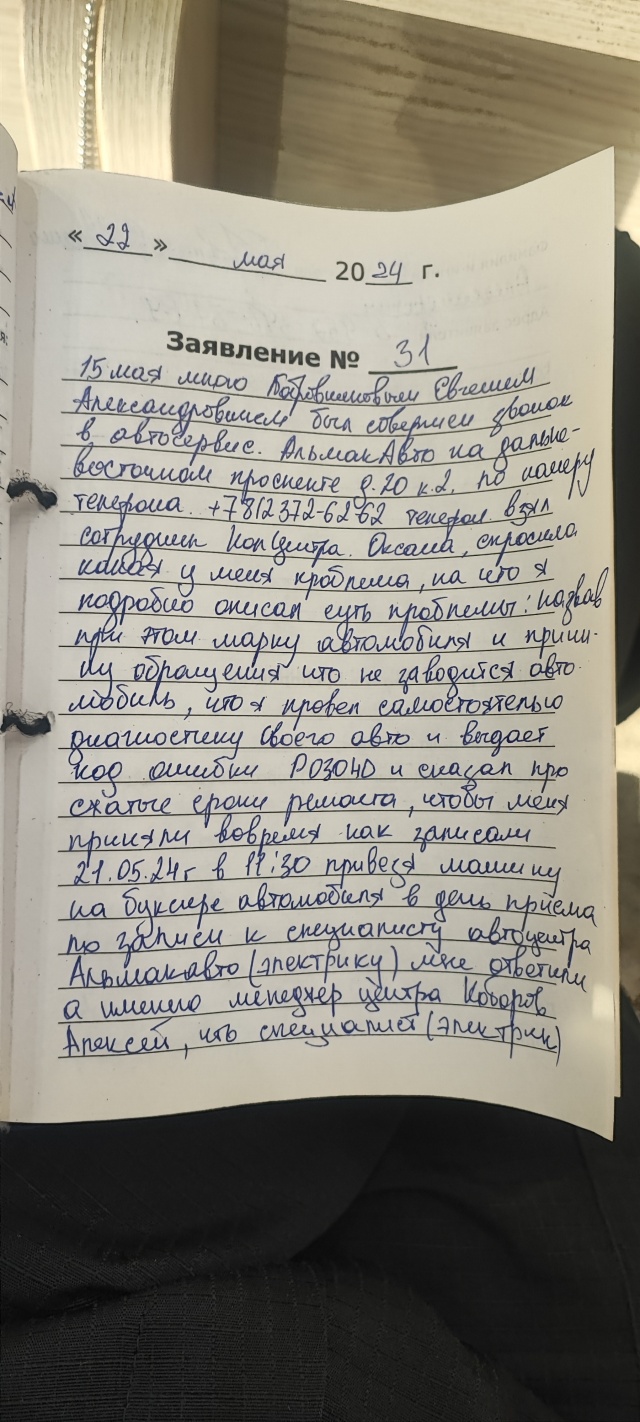 « 22 » мая 2024 г.
Заявление № 31
15 мая мною Бобровниковым Евгением
Александровичем был совершен звонок
в автосервис. АльмакАвто на дальне-
восточном проспекте д.20 к.2. по номеру
телефона. +7812372-62-62 телефон взял
сотрудник Колцентра. Оксана, спросила
какая у меня проблема, на что я
подробно описал суть проблемы: назвав
при этом марку автомобиля и причи-
ну обращения что не заводится авто-
мобиль, что я провел самостоятельно
диагностику своего авто и выдает
код ошибки Р0304D и сказал про
сжатые сроки ремонта, чтобы меня
приняли вовремя как записали
21.05.24г в 11:30 привезя машину
на буксире автомобиля в день приёма
по записи к специалисту автоцентра
Альмакавто (электрику) мне ответили
а именно менеджер центра
Алексей, что специалист (электрик)